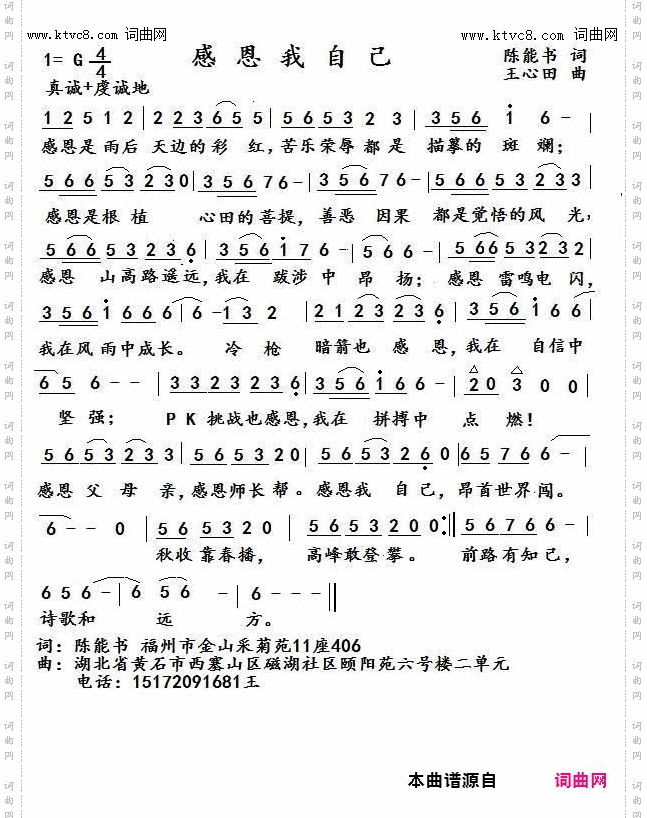 www.ktvc8.com 词曲网 www.ktvc8.com 词曲网
1= G 4/4 感恩我自己 陈能书 词
真诚+虔诚地 王心田 曲
1 2 5 1 2 | 2 2 3 6 5 5 | 5 6 5 3 2 3 | 3 5 6 1 6 - |
感恩是雨后 天边的彩 红,苦乐荣辱 都是 描摹的 斑 斓;
5 6 6 5 3 2 3 0 | 3 5 6 7 6 - | 3 5 6 7 6 - | 5 6 6 5 3 2 3 3 |
感恩是根植 心田的菩提,善恶 因果 都是觉悟的风 光,
5 6 6 5 3 2 3 3 6 | 3 5 6 1 7 6 - | 5 6 6 - | 5 6 6 5 3 2 3 2 |
感恩 山高路遥远,我在 跋涉 中 昂 扬; 感恩 雷鸣电 闪,
3 5 6 1 6 6 6 | 6 - 1 3 2 | 2 1 2 3 2 2 3 6 | 3 5 6 1 6 6 |
我在风雨中成长。 冷枪 暗箭也 感 恩,我在 自信中
6 5 6 - - | 3 3 2 3 2 2 3 6 | 3 5 6 1 6 6 - | 2 0 3 0 0 |
坚强; PK 挑战也感恩,我在 拼搏中 点 燃!
5 6 5 3 2 3 3 | 5 6 5 3 2 0 | 5 6 5 3 2 6 0 | 6 5 7 6 6 - |
感恩 父 母 亲,感恩师长 帮。感恩我 自 己,昂首世界 闯。
6 - - 0 | 5 6 5 3 2 0 | 5 6 5 3 2 0 0 :|| 5 6 7 6 6 - |
秋收 靠春播, 高峰敢登 攀。 前路有知己,
6 5 6 - - 6 5 6 - | 6 - - - ||
诗歌和 远 方。
词: 陈能书 福州市金山采菊苑11座406
曲: 湖北省黄石市西塞山区磁湖社区颐阳苑六号楼二单元
电话: 15172091681王
本曲谱源自 词曲网